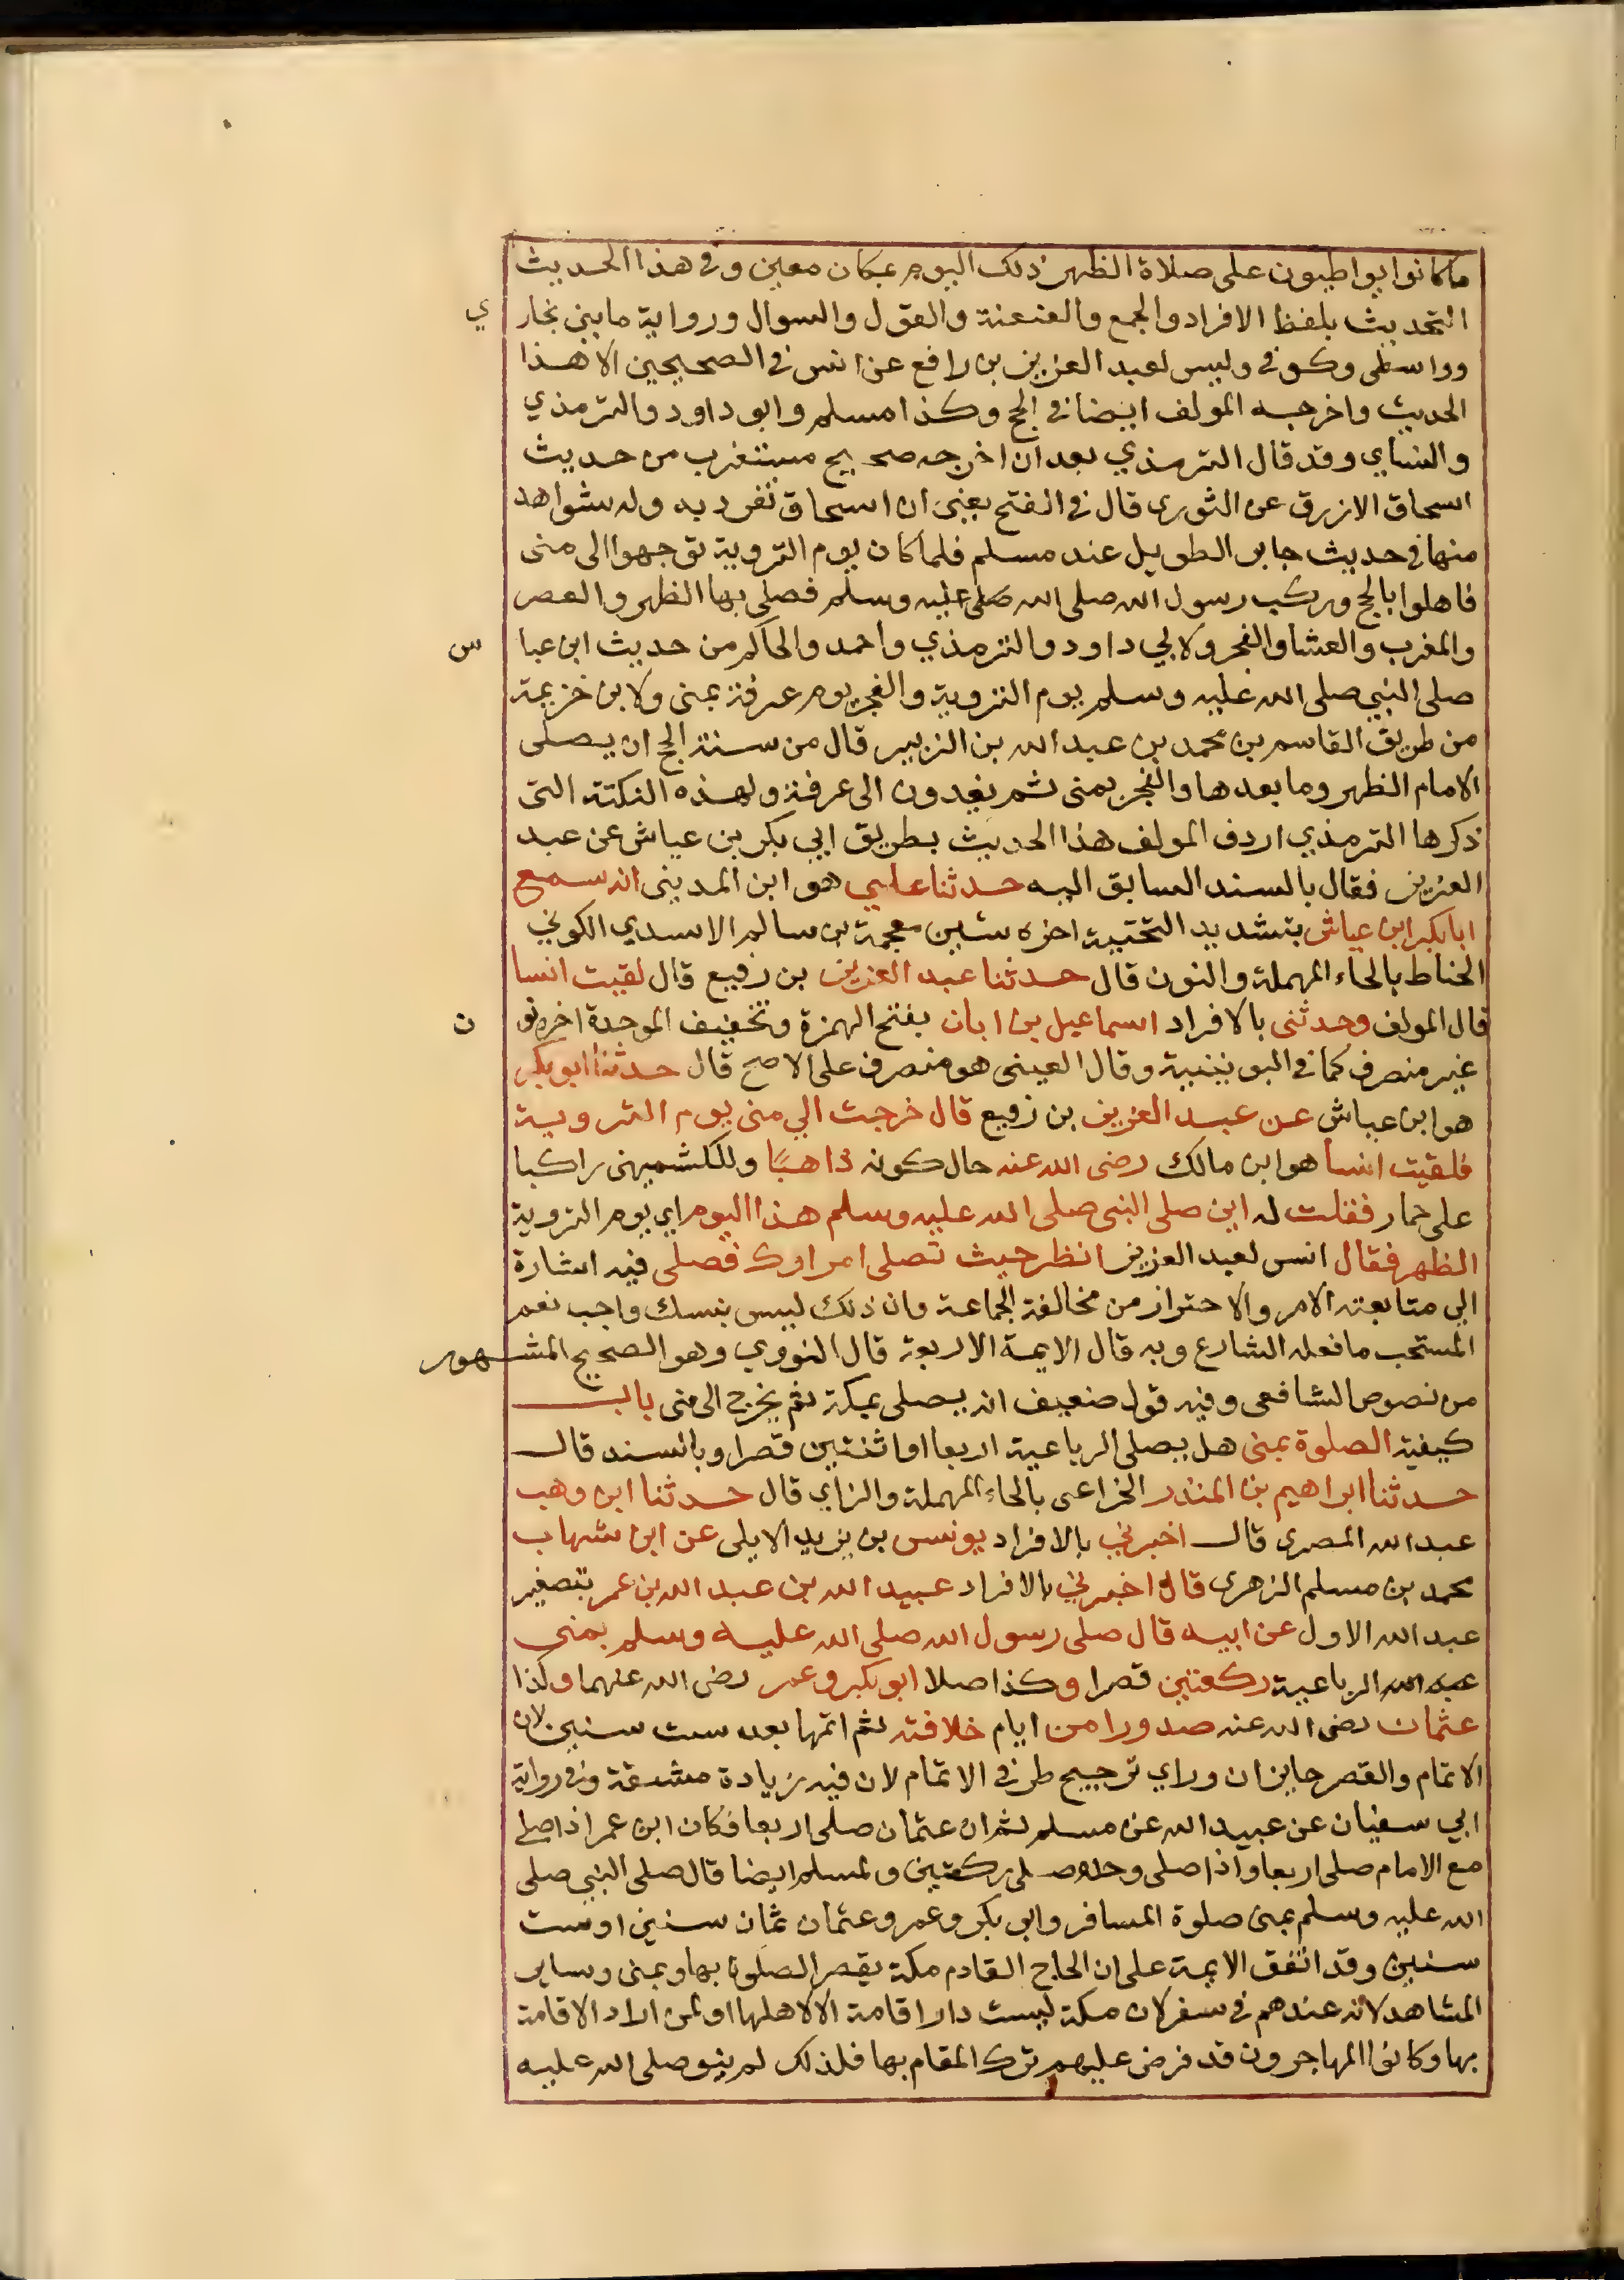 ما كانوا يواطبون على صلاة الظهر ذلك اليوم بمكان معين وفي هذا الحديث
التحديث بلفظ الافراد والجمع والعنعنة والقول والسوال ورواية ما بين بخاري
وواسطى وكوفي وليس لعبد العزيز بن رافع عن انس في الصحيحين الا هذا
الحديث واخرجه المولف ايضا في الحج وكذا مسلم وابو داود والترمذي
والنساي وقد قال الترمذي بعد ان اخرجه صحيح مستغرب من حديث
اسحاق الازرق عن الثوري قال في الفتح يعني ان اسحاق تفرد به وله شواهد
منها في حديث جابر الطويل عند مسلم فلما كان يوم التروية توجهوا الى منى
فاهلوا بالحج وركب رسول الله صلى الله صلى عليه وسلم فصلى بها الظهر والعصر
والمغرب والعشا والفجر ولابي داود والترمذي واحمد والحاكم من حديث ابن عباس
صلى النبي صلى الله عليه وسلم يوم التروية والفجر يوم عرفة بمنى ولابن خزيمة
من طريق القاسم بن محمد بن عبد الله بن الزبير قال من سنة الحج ان يصلى
الامام الظهر وما بعدها والفجر بمنى ثم يغدون الى عرفة ولهذه النكتة التى
ذكرها الترمذي اردف المولف هذا الحديث بطريق ابي بكر بن عياش عن عبد
العزيز فقال بالسند السابق اليه حدثنا علي هو ابن المدينى انه سمع
ابا بكر ابن عياش بتشديد التحتية اخره شين معجمة بن سالم الاسدي الكوفي
الحناط بالحاء المهملة والنون قال حدثنا عبد العزيز بن رفيع قال لقيت انسا
قال المولف وحدثنى بالافراد اسماعيل بن ابان بفتح الهمزة وتخفيف الموحدة اخره نون
غير منصرف كما في اليونينية وقال العينى هو منصرف على الاصح قال حدثنا ابو بكر
هو ابن عياش عن عبد العزيز بن رفيع قال خرجت الي منى يوم التروية
فلقيت انسا هو ابن مالك رضى الله عنه حال كونه ذاهبًا وللكشميهنى راكبا
على حمار فقلت له اين صلى النبى صلى الله عليه وسلم هذا اليوم اي يوم التروية
الظهر فقال انس لعبد العزيز انظر حيث تصلى امراوك فصلى فيه اشارة
الي متابعته الامر والاحتراز من مخالفة الجماعة وان ذلك ليس بنسك واجب نعم
المستحب ما فعله الشارع وبه قال الايمة الاربعة قال النووي وهو الصحيح المشهور
من نصوص الشافعى وفيه قول ضعيف انه يصلى بمكة ثم يخرج الى منى باب
كيفية الصلوة بمنى هل يصلى الرباعية اربعا او اثنتين قصرا وبالسند قال
حدثنا ابراهيم بن المنذر الخزاعى بالحاء المهملة والزاي قال حدثنا ابن وهب
عبد الله المصرى قال اخبرني بالافراد يونس بن يزيد الايلى عن ابن شهاب
محمد بن مسلم الزهرى قال اخبرني بالافراد عبيد الله بن عبد الله بن عمر بتصغير
عبد الله الاول عن ابيه قال صلى رسول الله صلى الله عليه وسلم بمنى
الرباعية ركعتين قصرا وكذا صلا ابو بكر وعمر رضى الله عنهما وكذا
عثمان رضى الله عنه صدورا من ايام خلافته ثم اتمها بعد ست سنين لان
الاتمام والقصر جايزان وراي ترجيح طرفي الاتمام لان فيه زيادة مشقة وفي رواية
ابي سفيان عن عبيد الله عن مسلم ثم ان عثمان صلى اربعا فكان ابن عمر اذا صلى
مع الامام صلى اربعا واذا صلى وحده صلى ركعتين ولمسلم ايضا قال صلى النبي صلى
الله عليه وسلم بمنى صلوة المسافر وابو بكر وعمر وعثمان ثمان سنين او ست
سنين وقد اتفق الايمة على ان الحاج القادم مكة يقصر الصلوة بها وبمنى وساير
المشاهد لانه عندهم في سفر لان مكة ليست دار اقامة الا لاهلها او لمن اراد الاقامة
بها وكانوا المهاجرون قد فرض عليهم ترك المقام بها فلذلك لم ينو صلى الله عليه